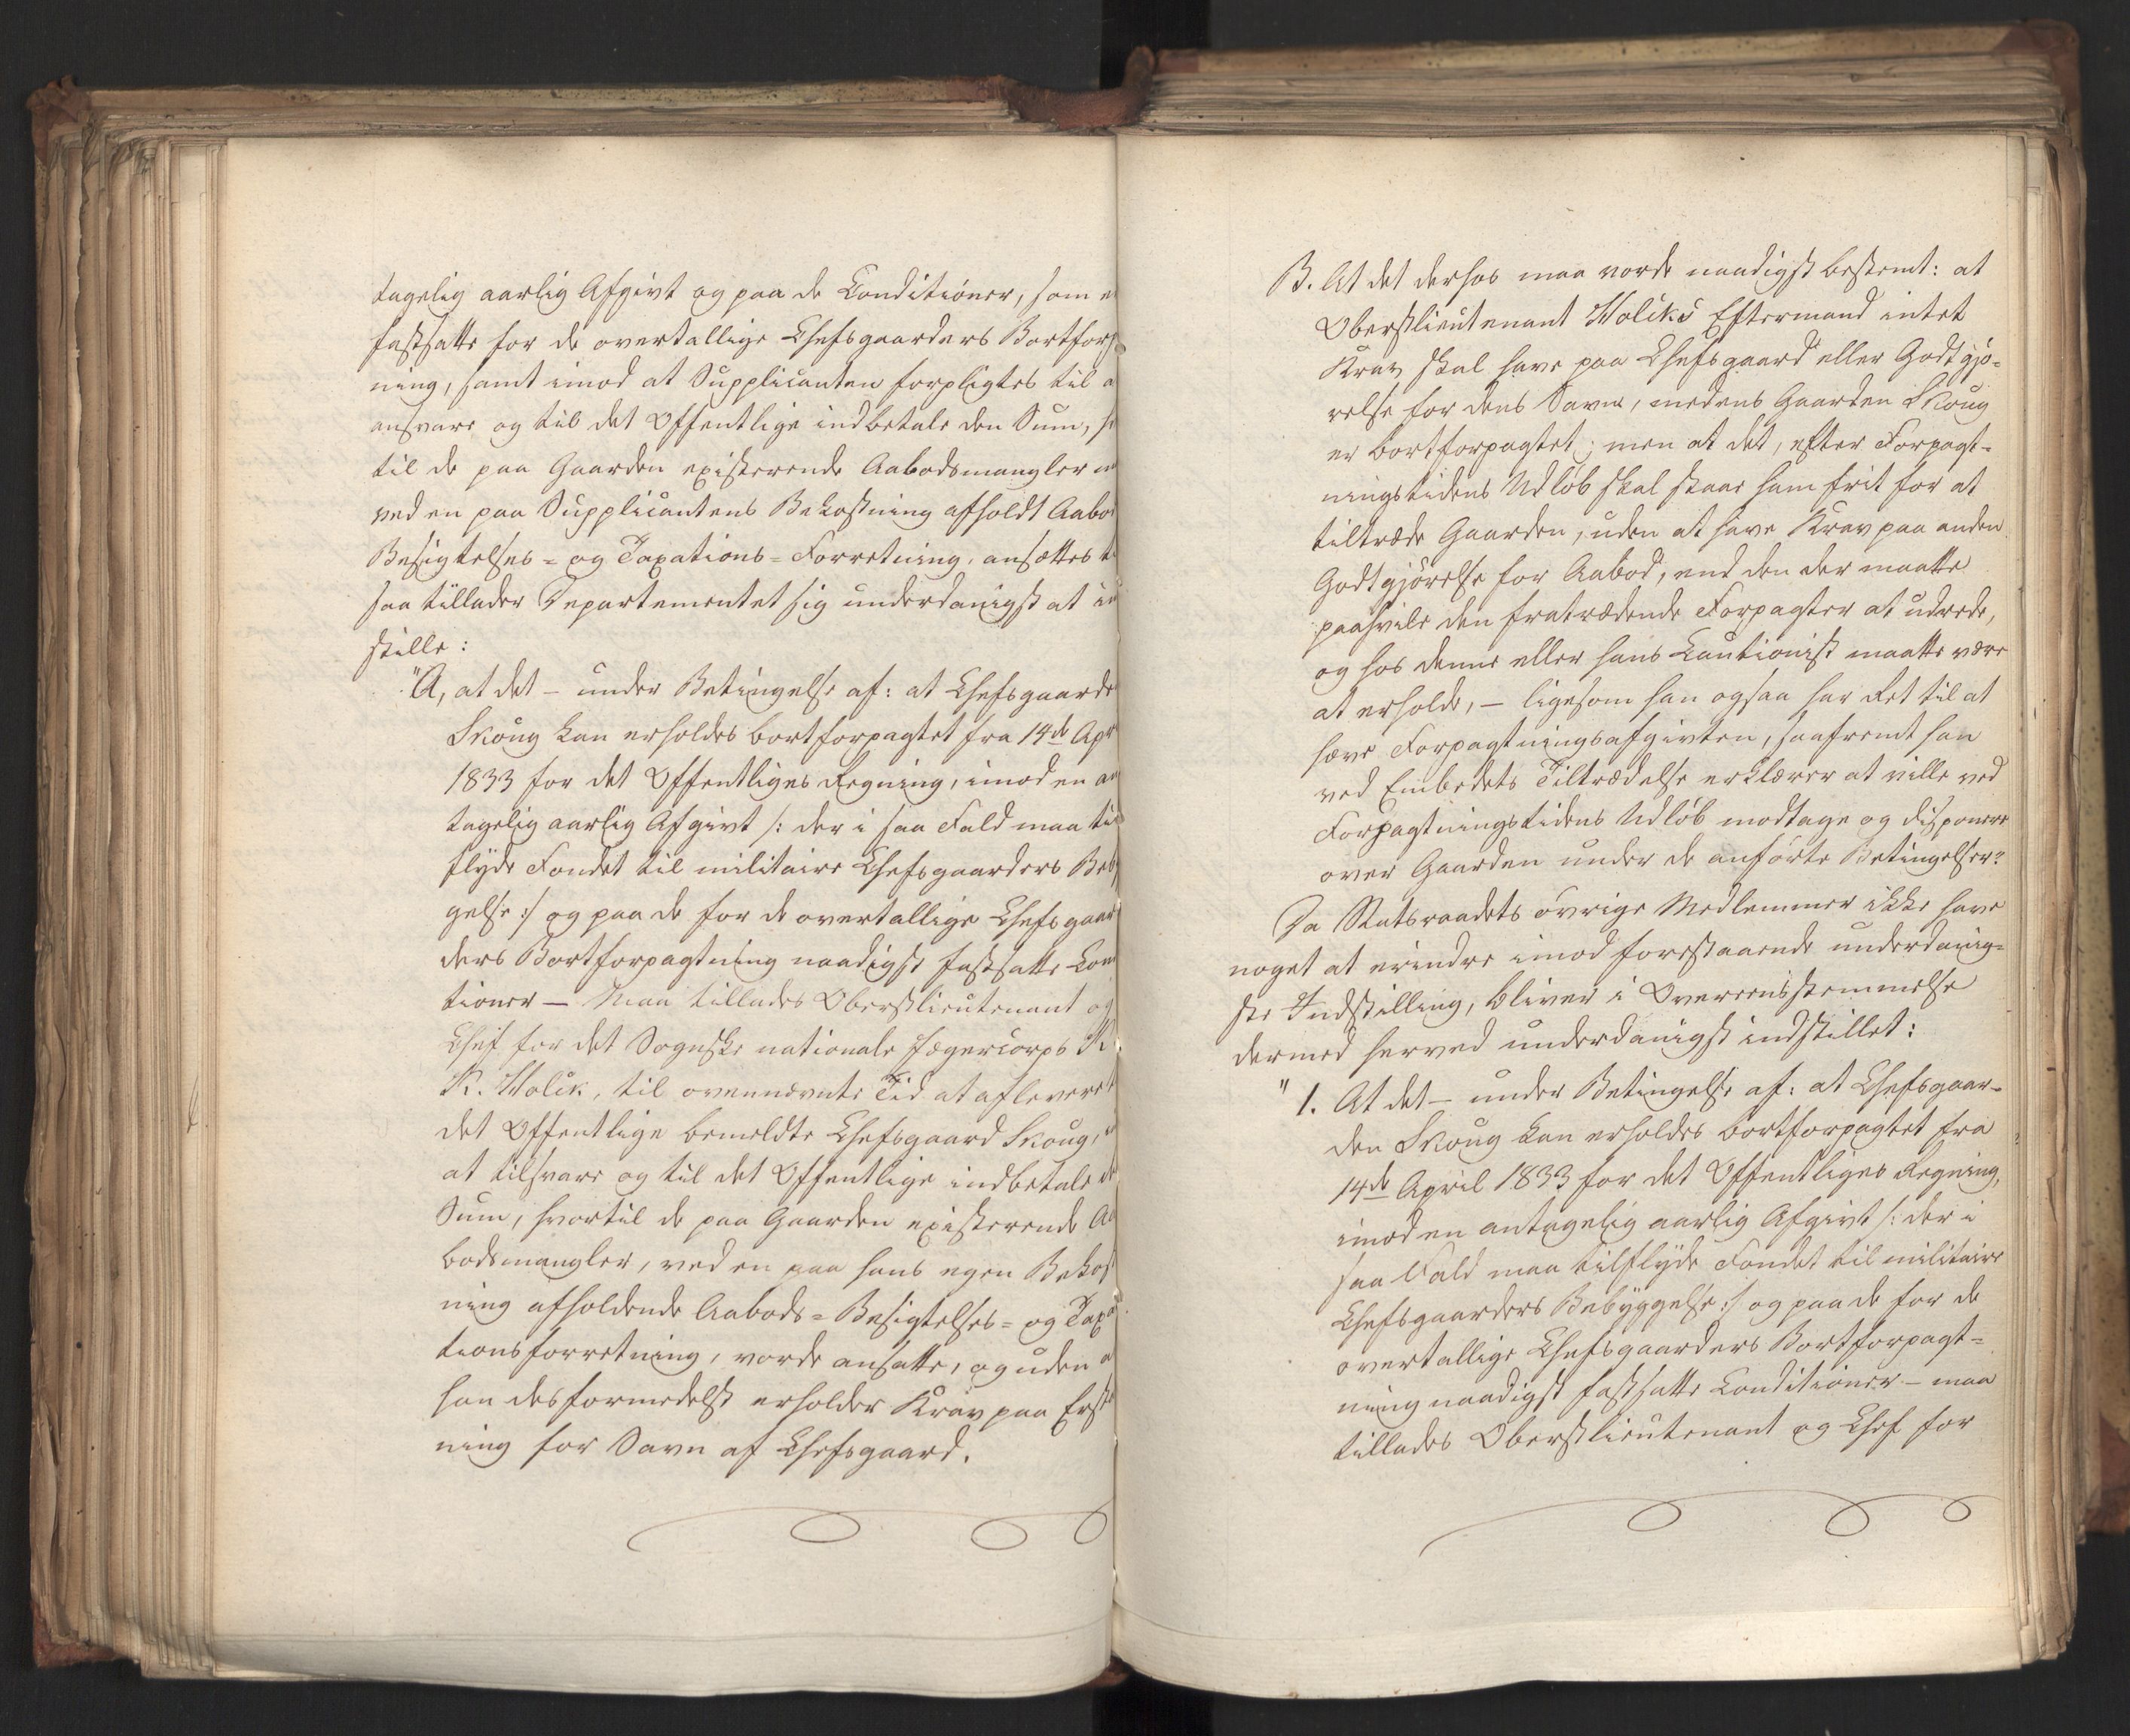 tagelig aarlig Afgivt og paa de Conditioner, som e
fastsatte for de overtallige Chefsgaarders Bortforp
ning, samt imod at Supplicanten forpligtes til a
ansvare og til det Offentlige indbetale den Sum,
til de paa Gaarden existerende Aabodsmangler
ved en paa Supplicantens Bekostning afholdt Aabo
Besigtelses- og Taxations-Forretning, ansættes
saa tillader Departementet sig underdanigst at in
stille:
"A, at det - under Betingelse af: at Chefsgaarde
Skoug kan erholdes bortforpagtet fra 14de Apr
1833 for det Offentliges Regning, imod en an
tagelig aarlig Afgivt /: der i saa Fald maa til
flyde Fondet til militaire Chefsgaarders Beby
gelse :/ og paa de for de overtallige Chefsgaar
ders Bortforpagtning naadigst fastsatte Con
tioner - maa tillades Oberstlieutenant og
Chef for det Sognske nationale Jægercorps
R. Holck, til ovennævnte Tid at aflevere t
det Offentlige bemeldte Chefsgaard Skoug,
at tilsvare og til det Offentlige indbetale
Sum, hvortil de paa Gaarden existerende Aa
bodsmangler, ved en paa hans egen Bekost
ning afholdende Aabods-Besigtelses- og Taxa
tionsforretning, vorde ansatte, og uden a
han desformedelst erholder Krav paa Erstat
ning for Savn af Chefsgaard.
B. At det derhos maa vorde naadigst bestemt: at
Oberstlieutenant Holcks Eftermand intet
Krav skal have paa Chefsgaard eller Godtgjø-
relse for dens Savn, medens Gaarden Skoug
er bortforpagtet; men at det, efter Forpagt-
ningstidens Udløb skal staae ham frit for at
tiltræde Gaarden, uden at have Krav paa anden
Godtgjørelse for Aabod, end den der maatte
paahvile den fratrædende Forpagter at udrede,
og hos denne eller hans Cautionist maatte være
at erholde, - ligesom han ogsaa har Ret til at
hæve Forpagtningsafgivten, saafremt han
ved Embedets Tiltrædelse erklærer at ville ved
Forpagtningstidens Udløb modtage og disponere
over Gaarden under de anførte Betingelser."
Da Statsraadets øvrige Medlemmer ikke have
noget at erindre imod forestaaende underdanig-
ste Indstilling, bliver i Overeensstemmelse
dermed herved underdanigst indstillet:
"1. At det - under Betingelse af: at Chefsgaar-
den Skoug kan erholdes bortforpagtet fra
14de April 1833 for det Offentliges Regning,
imod en antagelig aarlig Afgivt /: der i
saa Fald maa tilflyde Fondet til militaire
Chefsgaarders Bebyggelse :/ og paa de for de
overtallige Chefsgaarders Bortforpagt-
ning naadigst fastsatte Conditioner - maa
tillades Oberstlieutenant og Chef for